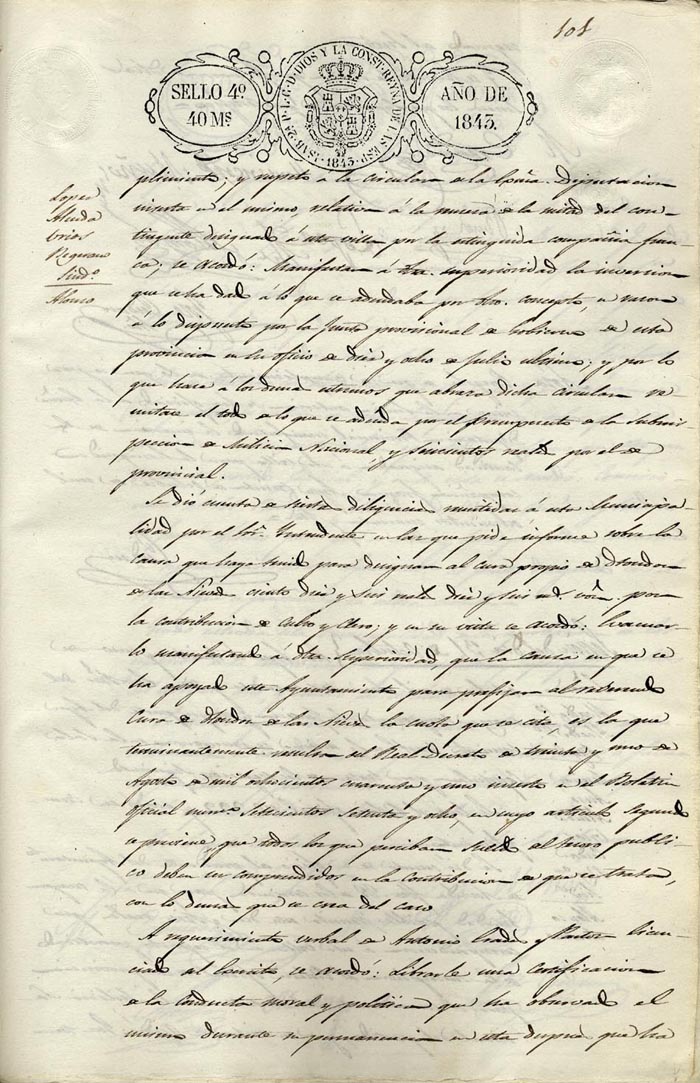 101
SELLO 4º
40 Ms
ISAB. 2ª P.L.G.D.DIOS Y LA CONST. REYNA DE LAS ESP. 1843.
AÑO DE
1843.
Lopez
Regerano
Sindº
Alonso
plimiento; y respeto a la circular de la Diputacion
inserta en el mismo, relativa á la mitad del con-
tingente designado á esta villa por la estinguida compañia fran-
ca; se acordó: Manifestar á superioridad la inversion
que se ha dado á lo que se adeudaba por concepto, en
á lo dispuesto por la Junta provisional de Gobierno de esta
provincia en su oficio de diez y ocho de Julio ultimo; y por lo
que hace á los demas estremos que abraza dicha circular re-
mitase el todo de lo que se adeuda por el Presupuesto de la Subins-
peccion de Milicia Nacional y seiscientos por el de
provincial.
Se dió cuenta de diligencias remitidas á esta Municipa-
lidad por el Sor. Yntendente en las que pide informe sobre la
causa que haya tenido para designar al cura propio de
de las Nieves ciento diez y seis diez y seis por
la contribucion de Culto y Clero; y en su vista se acordó:
lo manifestando á dha. Superioridad, que la causa en que se
ha apoyado este Ayuntamiento para prefijar al
Cura de de las Nieves la cuota que se cita, es la que
terminantemente resulta del Real Decreto de treinta y uno de
Agosto de mil ochocientos cuarenta y uno inserto en el Boletin
oficial numº setecientos setenta y ocho, en cuyo articulo segundo
se previene, que todos los que perciban sueldo del tesoro publi-
co deben ser comprendidos en la contribucion de que se trata,
con lo demas que se crea del caso
A requerimiento verbal de Antonio y Pastor licen-
ciado del Egercito, se acordó: Librarle una certificacion
de la conducta moral y politica que ha observado el
mismo durante su permanencia en esta despues que ha